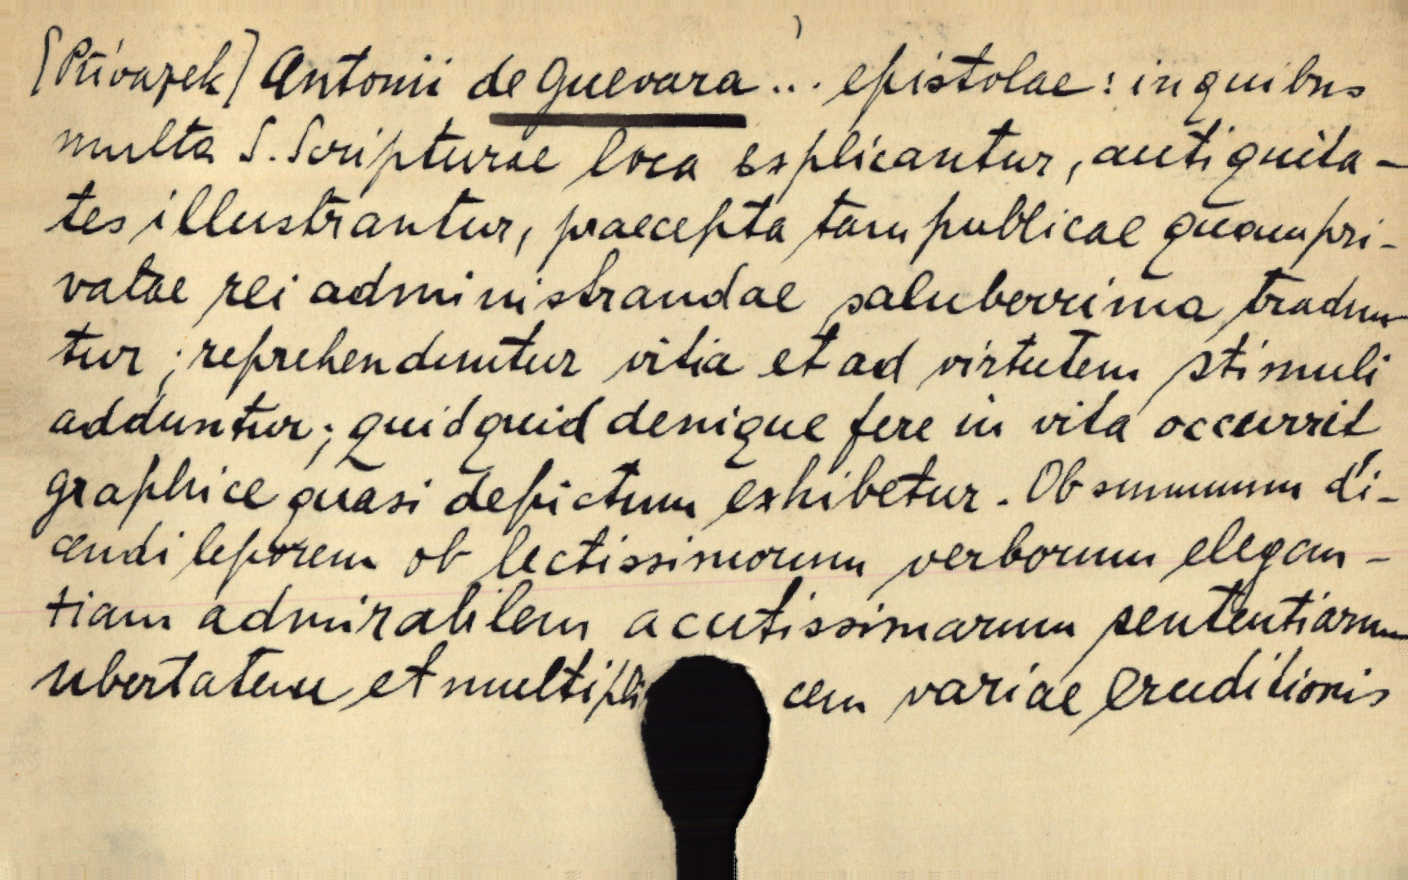 [Přívazek] Antonii de Guevara ... epistolae: in quibus
multa S. Scripturae loca explicantur, antiquita-
tes illustrantur, praecepta tam publicae quam pri-
vatae rei administrandae saluberrima tradun-
tur; reprehenduntur vitia et ad virtutem stimuli
adduntur; quidquid denique fere in vita occurrit,
graphice quasi depictum exhibetur. Ob summum di-
cendi leporem ob lectissimorum verborum elegan-
tiam admirabilem acutissimarum sententiarum
ubertatem et multipli cem variae eruditionis